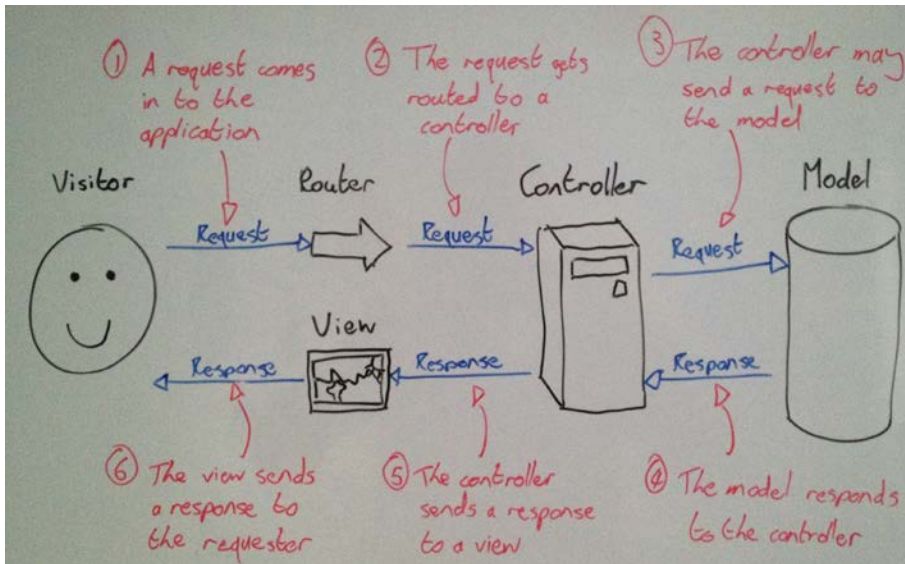 ① A request comes
in to the
application
② The request gets
routed to a
controller
③ The controller may
send a request to
the model
Visitor
Router
Controller
Model
Request
Request
Request
View
Response
Response
Response
⑥ The view sends
a response to
the requester
⑤ The controller
sends a response
to a view
④ The model responds
to the controller